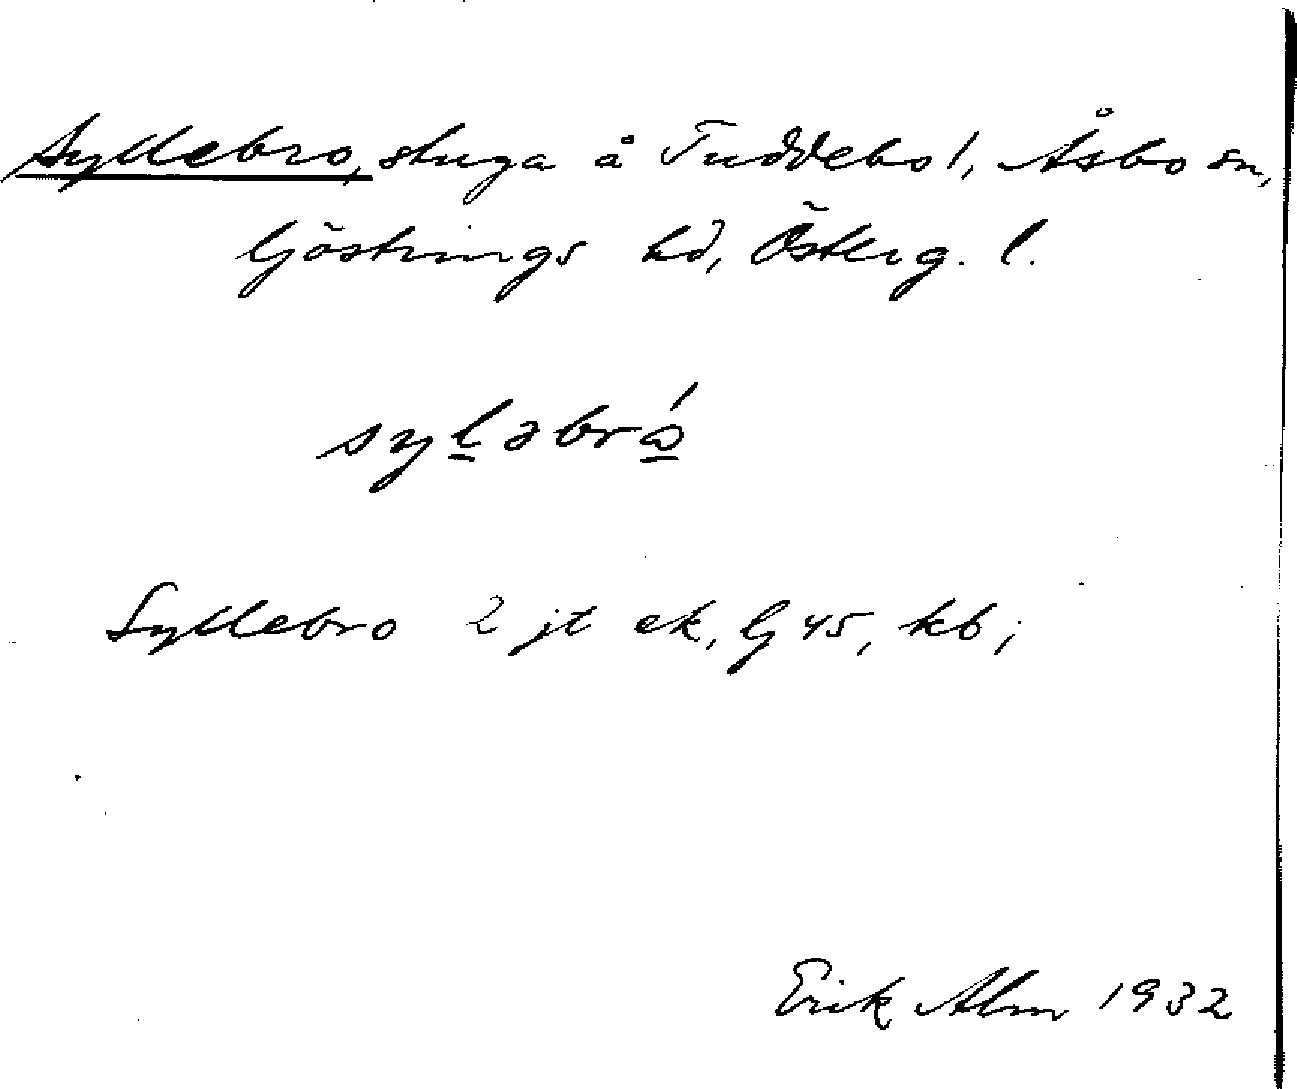 Syllebro, stuga å Tuddebo 1, Åsbo sn,
Göstrings hd, Österg. l.
syləbró
Syllebro 2 jt ek, G 45, kb;
Erik Alm 1932